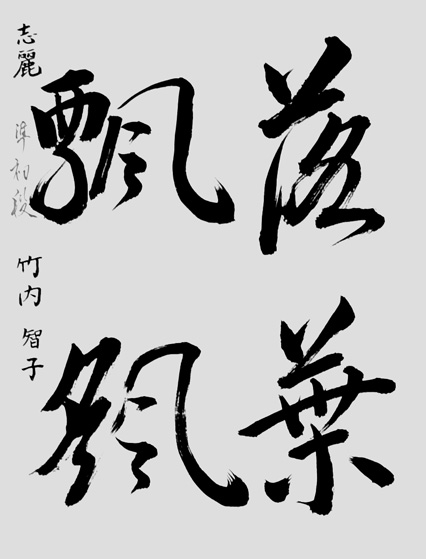 落葉
飄颻
志麗 準初段 竹内智子